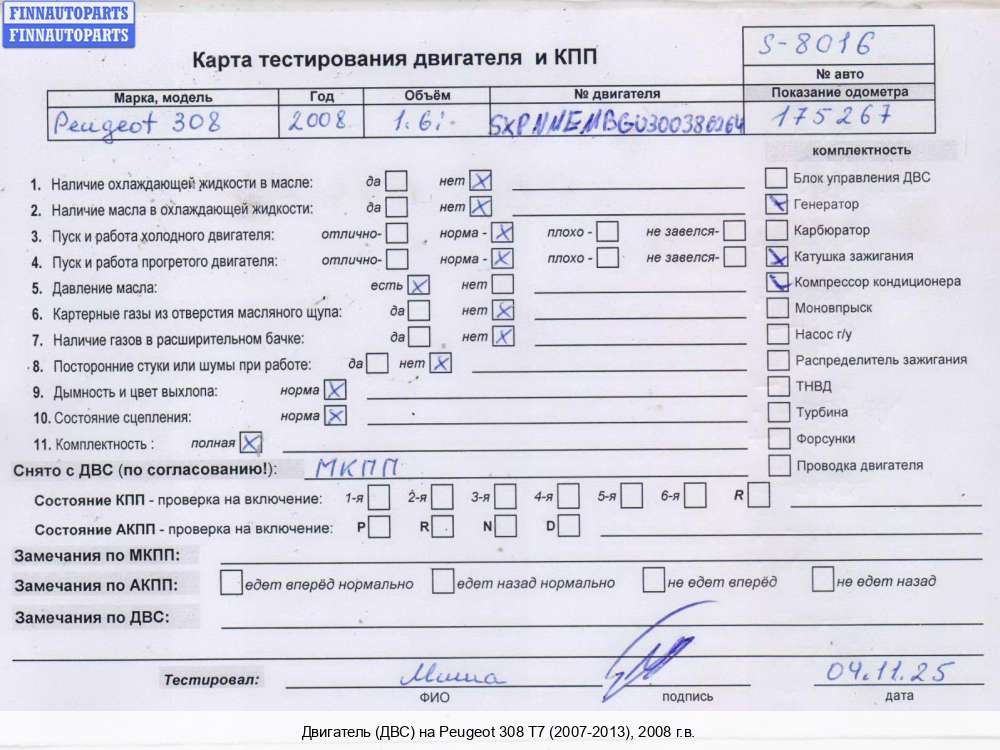 FINNAUTOPARTS
FINNAUTOPARTS
Карта тестирования двигателя и КПП
S-8016
№ авто
Марка, модель Год Объём № двигателя Показание одометра
Peugeot 308 2008 1.6i 175267
комплектность
1. Наличие охлаждающей жидкости в масле: да нет X Блок управления ДВС
2. Наличие масла в охлаждающей жидкости: да нет X Генератор
3. Пуск и работа холодного двигателя: отлично- норма - X плохо - не завелся- Карбюратор
4. Пуск и работа прогретого двигателя: отлично- норма - X плохо - не завелся- Катушка зажигания
5. Давление масла: есть X нет Компрессор кондиционера
6. Картерные газы из отверстия масляного щупа: да нет X Моновпрыск
7. Наличие газов в расширительном бачке: да нет X Насос г/у
8. Посторонние стуки или шумы при работе: да нет X Распределитель зажигания
9. Дымность и цвет выхлопа: норма X ТНВД
10. Состояние сцепления: норма X Турбина
11. Комплектность : полная X Форсунки
Снято с ДВС (по согласованию!): МКПП Проводка двигателя
Состояние КПП - проверка на включение: 1-я 2-я 3-я 4-я 5-я 6-я R
Состояние АКПП - проверка на включение: P R N D
Замечания по МКПП:
Замечания по АКПП: едет вперёд нормально едет назад нормально не едет вперёд не едет назад
Замечания по ДВС:
Тестировал: Миша 04.11.25
ФИО подпись дата
Двигатель (ДВС) на Peugeot 308 T7 (2007-2013), 2008 г.в.